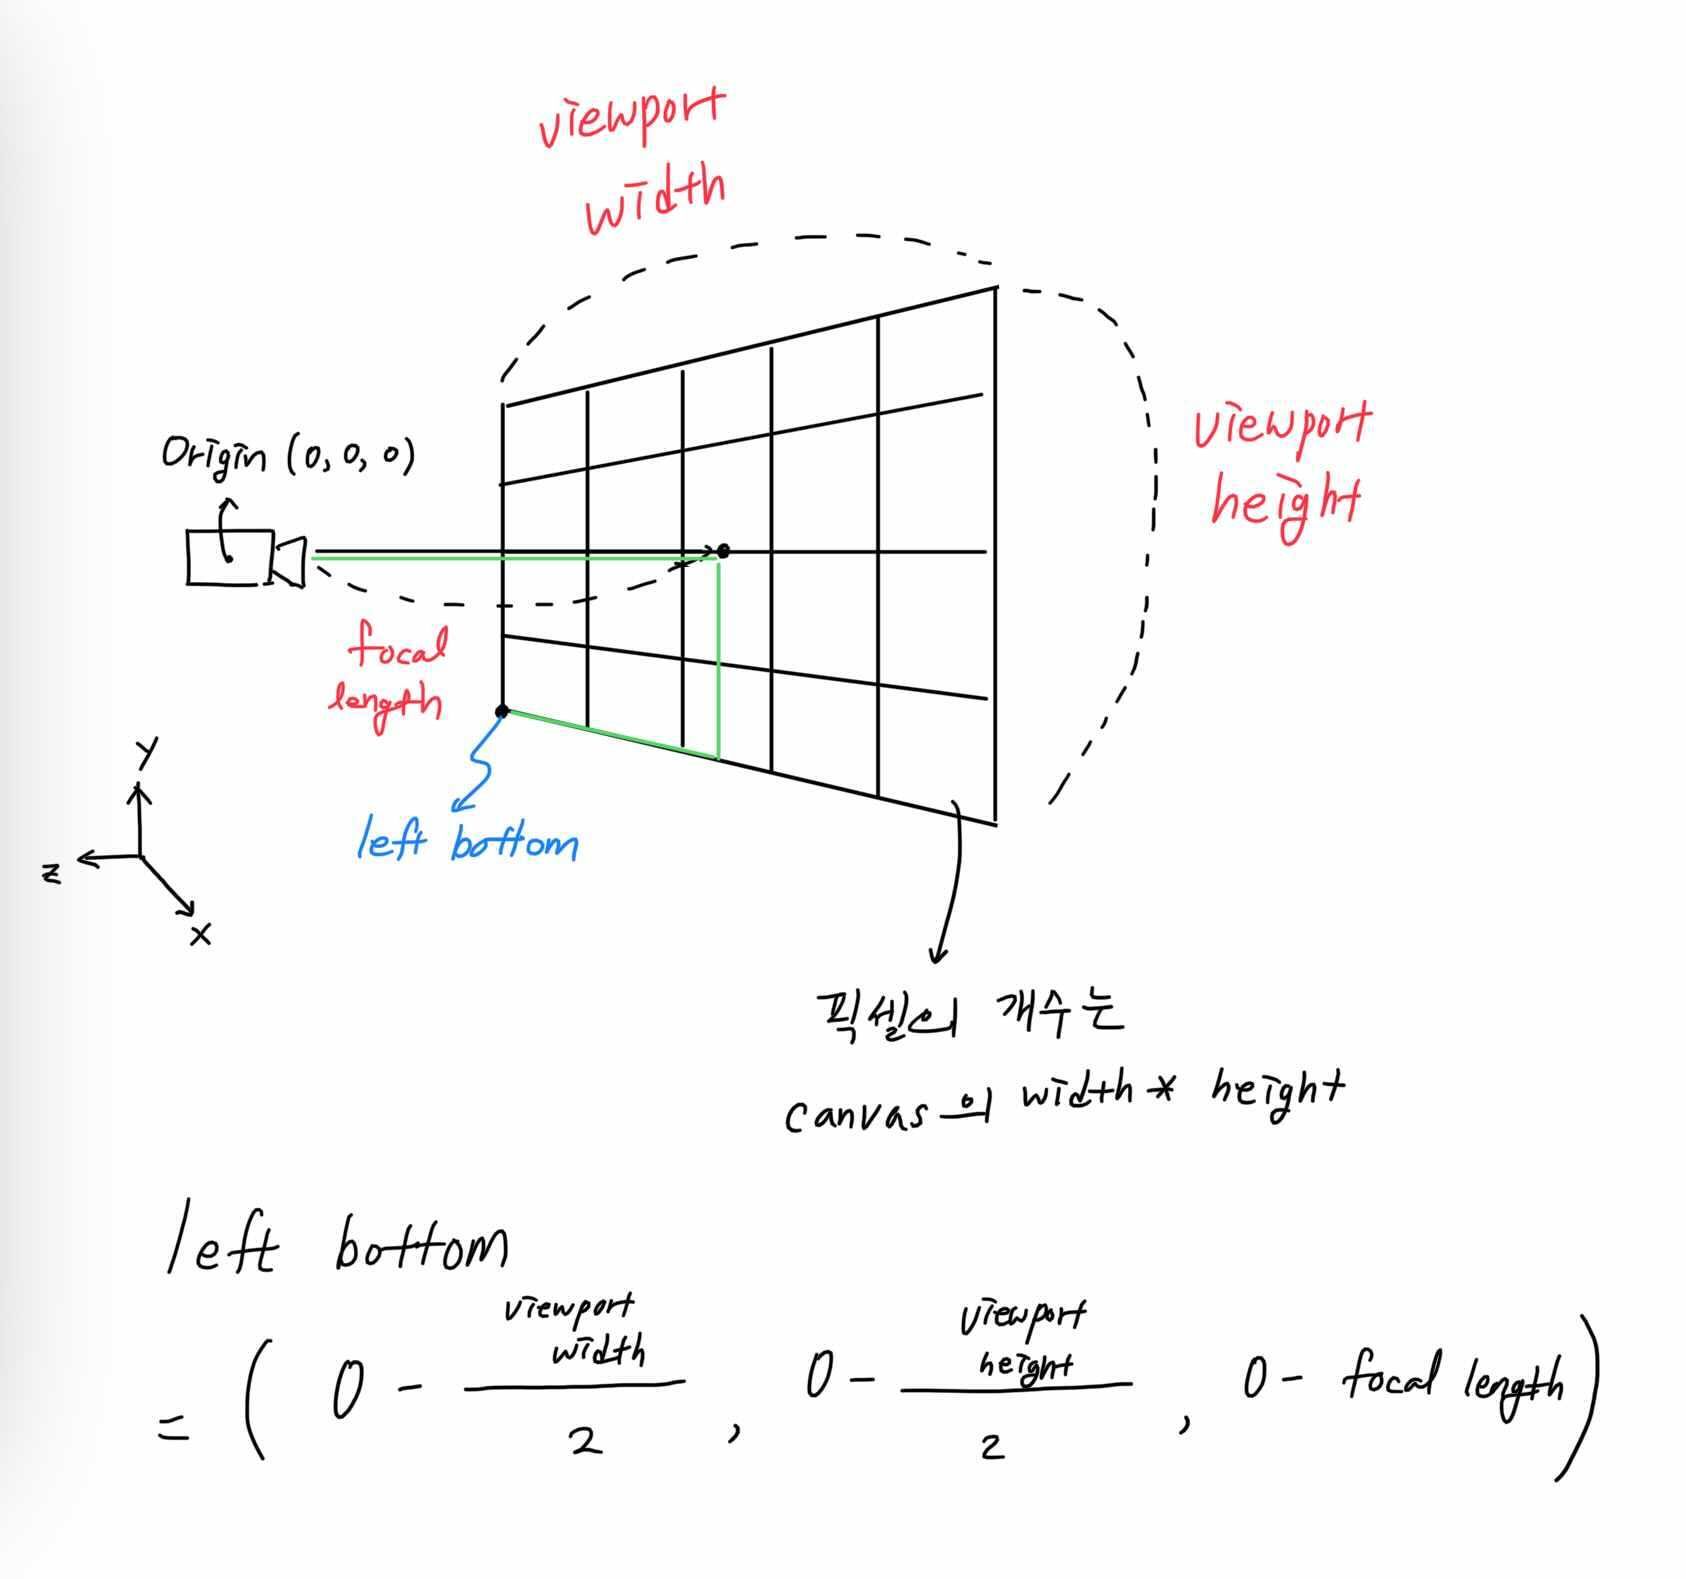 viewport
width
viewport
height
Origin (0, 0, 0)
focal
length
left bottom
Y
Z
X
픽셀의 개수는
canvas의 width * height
left bottom
= ( 0 - viewport width / 2 , 0 - viewport height / 2 , 0 - focal length )